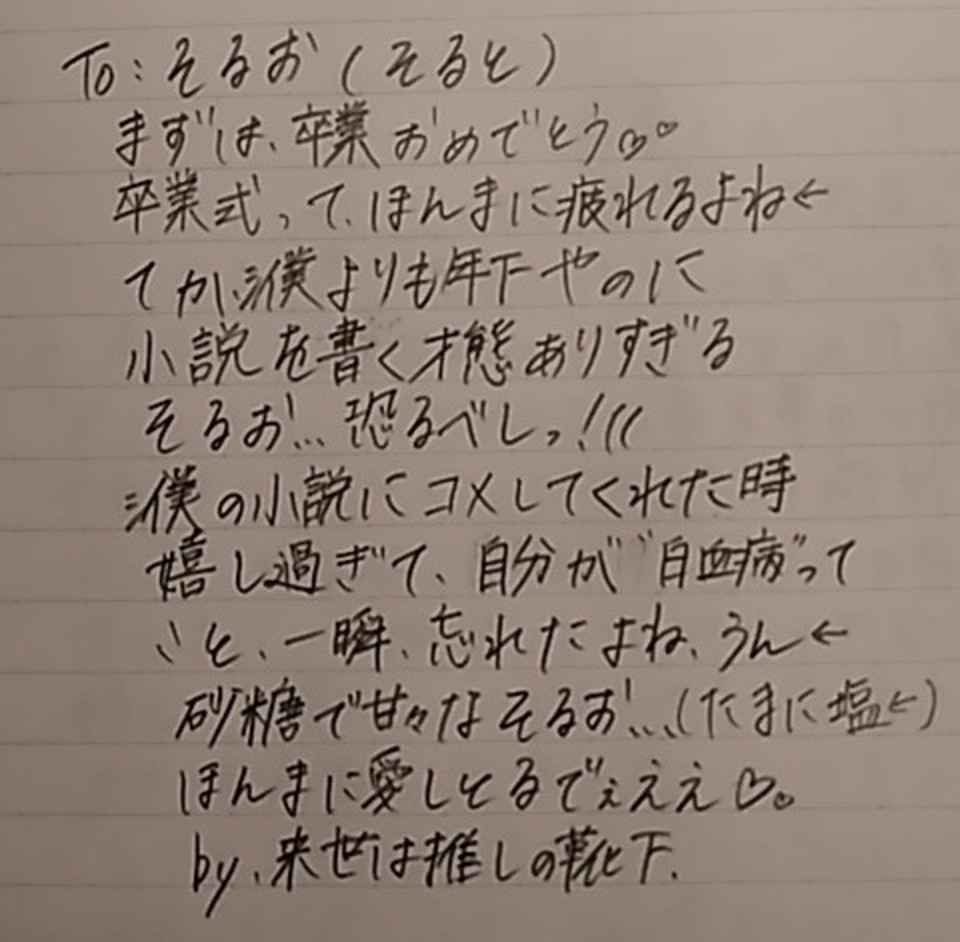 To:そるお(そると)
まずは、卒業おめでとう♡♡
卒業式って、ほんまに疲れるよね←
てか、濮よりも年下やのに
小説を書く才態ありすぎる
そるお…恐るべしっ!((
濮の小説にコメしてくれた時
嬉し過ぎて、自分が"白血病"って
こと、一瞬、忘れたよね、うん←
砂糖で甘々なそるお…(たまに塩←)
ほんまに愛しとるでぇええ♡。
by、来世は推しの靴下.